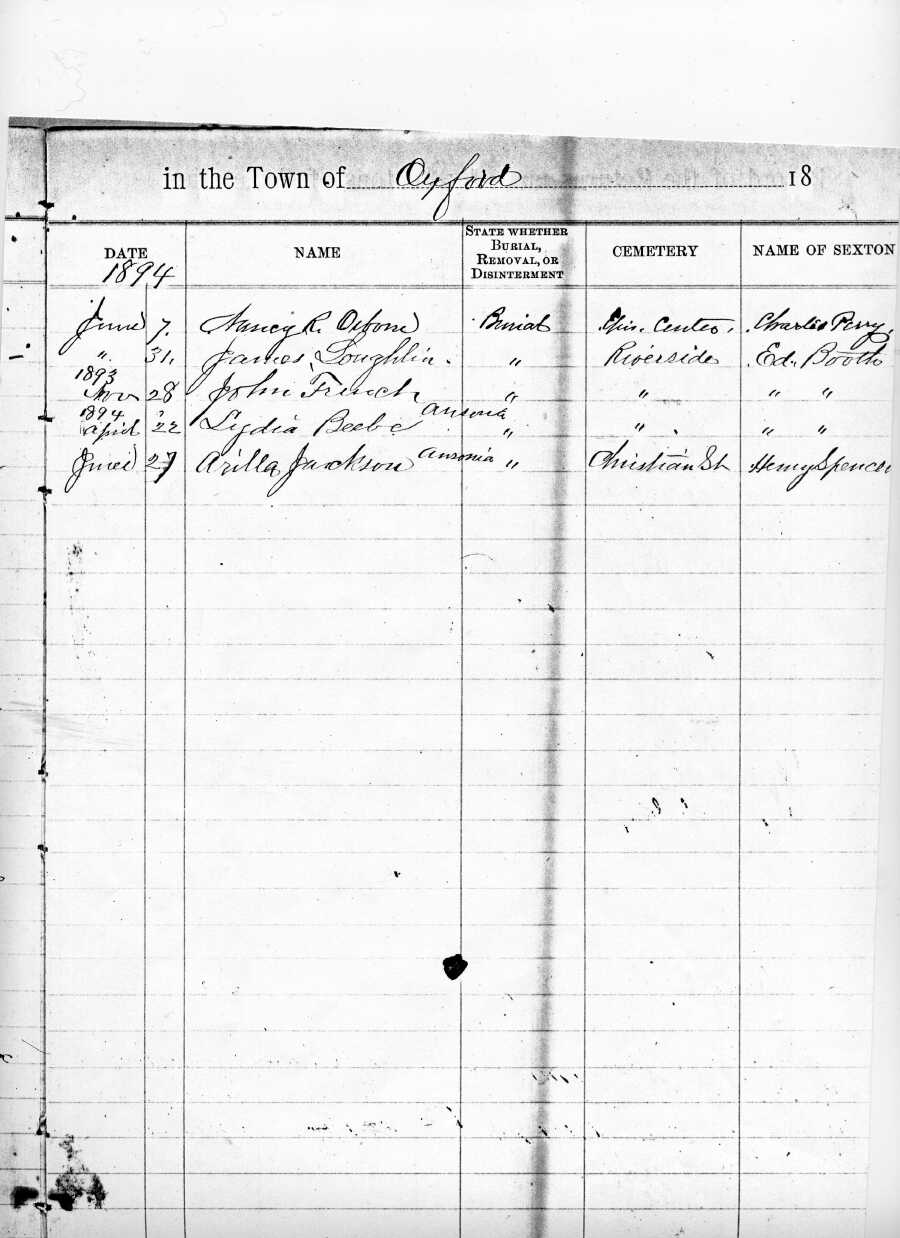 in the Town of Oxford 18
DATE NAME STATE WHETHER BURIAL, REMOVAL, OR DISINTERMENT CEMETERY NAME OF SEXTON
1894
June 7. Nancy R. Osborn Burial Epis. Center. Charles Perry.
" 31. James Loughlin. " Riverside Ed. Booth
1893
Nov 28 John French " " " "
1894
April 22 Lydia Beebe Ansonia " " " "
June 27 Arilla Jackson Ansonia " Christian St Henry Spencer